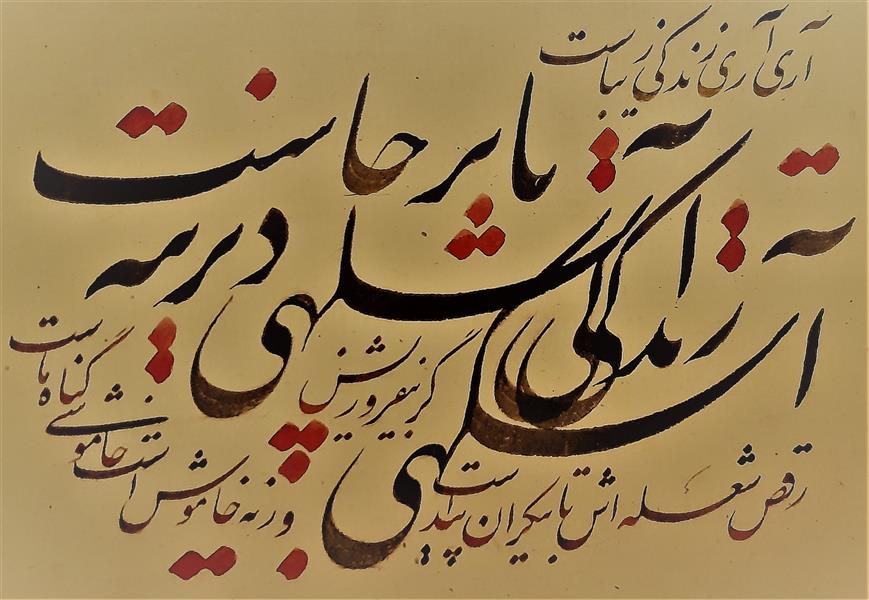 آری آری زندگی زیباست
زندگی آتشگهی
آتشگهی دیرینه
پا برجاست
گر بیفروزیش
رقص شعله اش تا بیکران پیداست
ورنه خاموش است خاموشی گناه ماست